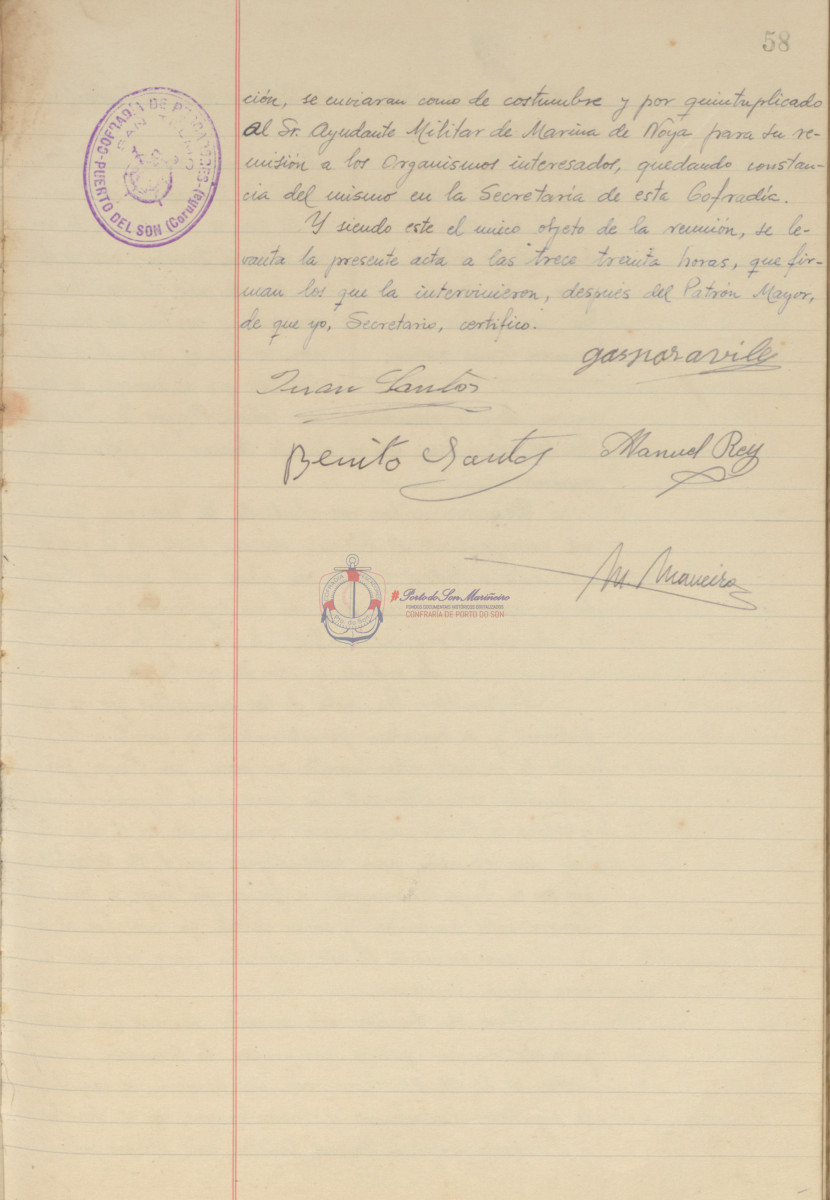 58
ción, se enviaran como de costumbre y por quintuplicado
al Sr. Ayudante Militar de Marina de Noya para su re-
misión a los Organismos interesados, quedando constan-
cia del mismo en la Secretaría de esta Cofradía.
Y siendo este el unico objeto de la reunión, se le-
vanta la presente acta a las trece treinta horas, que fir-
man los que la intervinieron, después del Patrón Mayor,
de que yo, Secretario, certifico.
gasparavile
Juan Santos
Benito Santos Manuel Rey
M Maneiro
COFRADIA DE PESCADORES
SAN TELMO
PUERTO DEL SON (Coruña)
Pto. do Son
#Porto do Son Mariñeiro
FONDOS DOCUMENTAIS HISTÓRICOS DIXITALIZADOS
CONFRARÍA DE PORTO DO SON